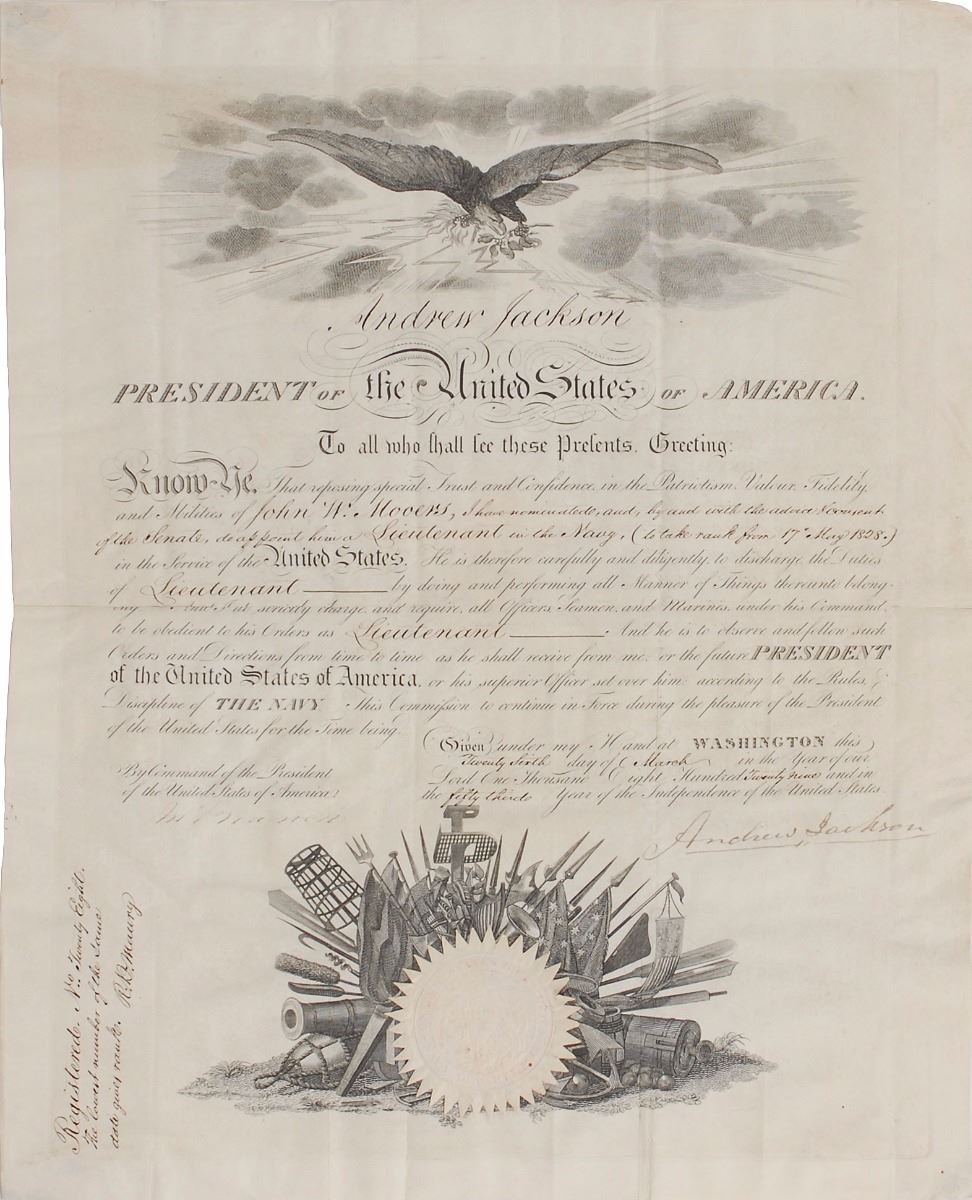 Andrew Jackson
PRESIDENT OF the United States OF AMERICA.
To all who shall see these Presents, Greeting:
Know Ye, That reposing special Trust and Confidence in the Patriotism, Valour, Fidelity,
and Abilities of John W. Mooers, I have nominated, and, by and with the advice & consent
of the Senate, do appoint him a Lieutenant in the Navy, (to take rank from 17th May 1828.)
in the Service of the United States. He is therefore carefully and diligently to discharge the Duties
of Lieutenant by doing and performing all Manner of Things thereunto belong-
ing strictly charge and require, all Officers, Seamen, and Marines, under his Command,
to be obedient to his Orders as Lieutenant And he is to observe and follow such
Orders and Directions from time to time as he shall receive from me, or the future PRESIDENT
of the United States of America, or his superior Officer set over him, according to the Rules, &
Discipline of THE NAVY This Commission to continue in Force during the pleasure of the President
of the United States for the Time being.
Given under my Hand at WASHINGTON this
Twenty Sixth day of March in the Year of our
Lord One Thousand Eight Hundred Twenty nine and in
the fifty third Year of the Independence of the United States.
By Command of the President
of the United States of America:
Andrew Jackson
Registered. No. Twenty Eight.
The lowest number of the same
date gives rank. R.B. Maury